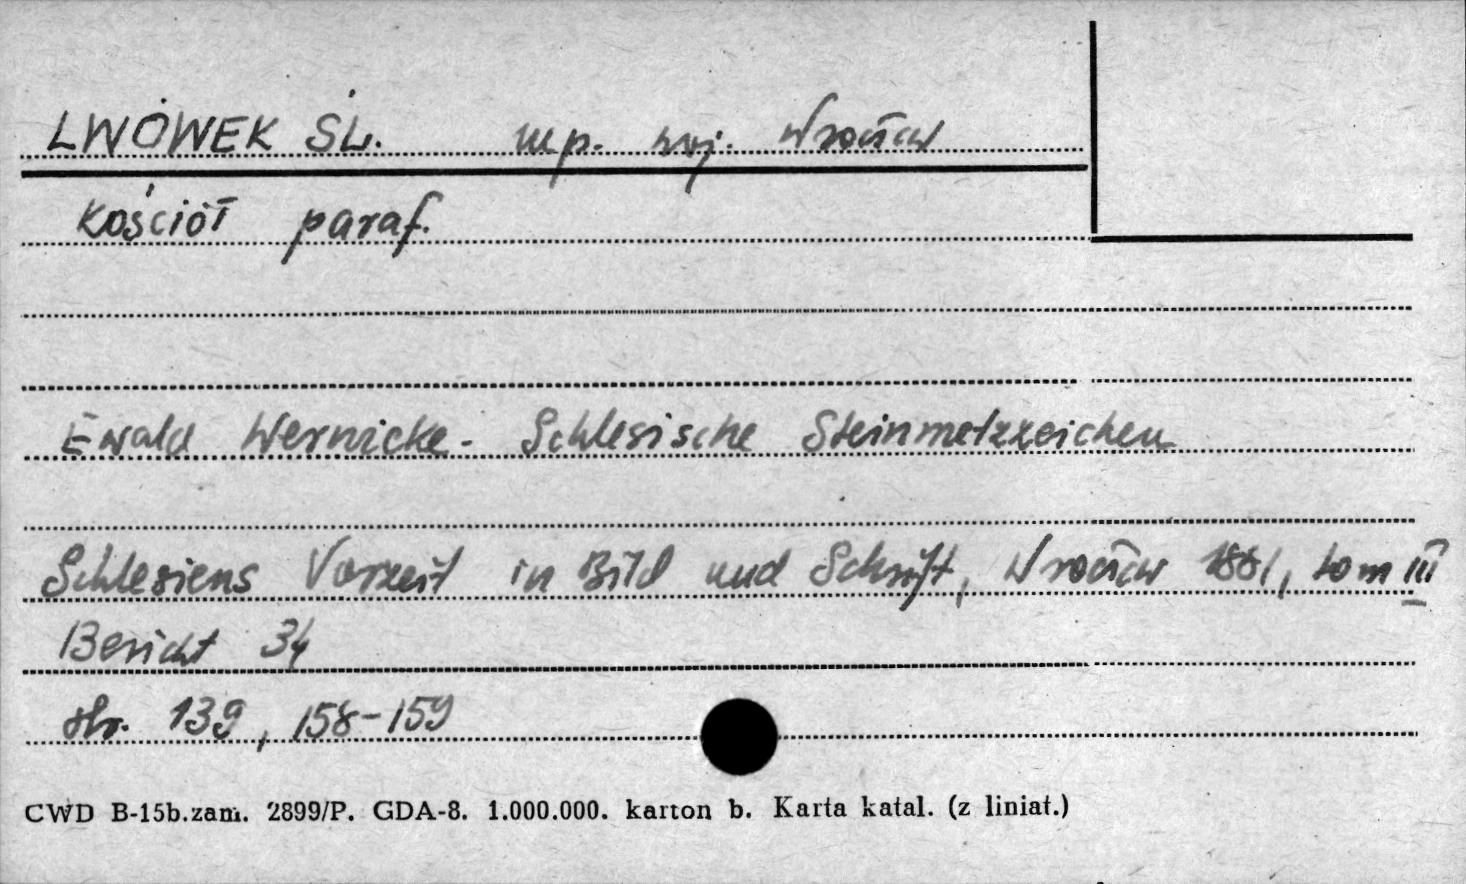 LWÓWEK ŚL. mp. woj. Wrocław
Kościół paraf.
Ewald Wernicke - Schlesische Steinmetzzeichen
Schlesiens Vorzeit in Bild und Schrift, Wrocław 1881, tom III
Bericht 34
str. 139, 158-159
CWD B-15b.zam. 2899/P. GDA-8. 1.000.000. karton b. Karta katal. (z liniat.)